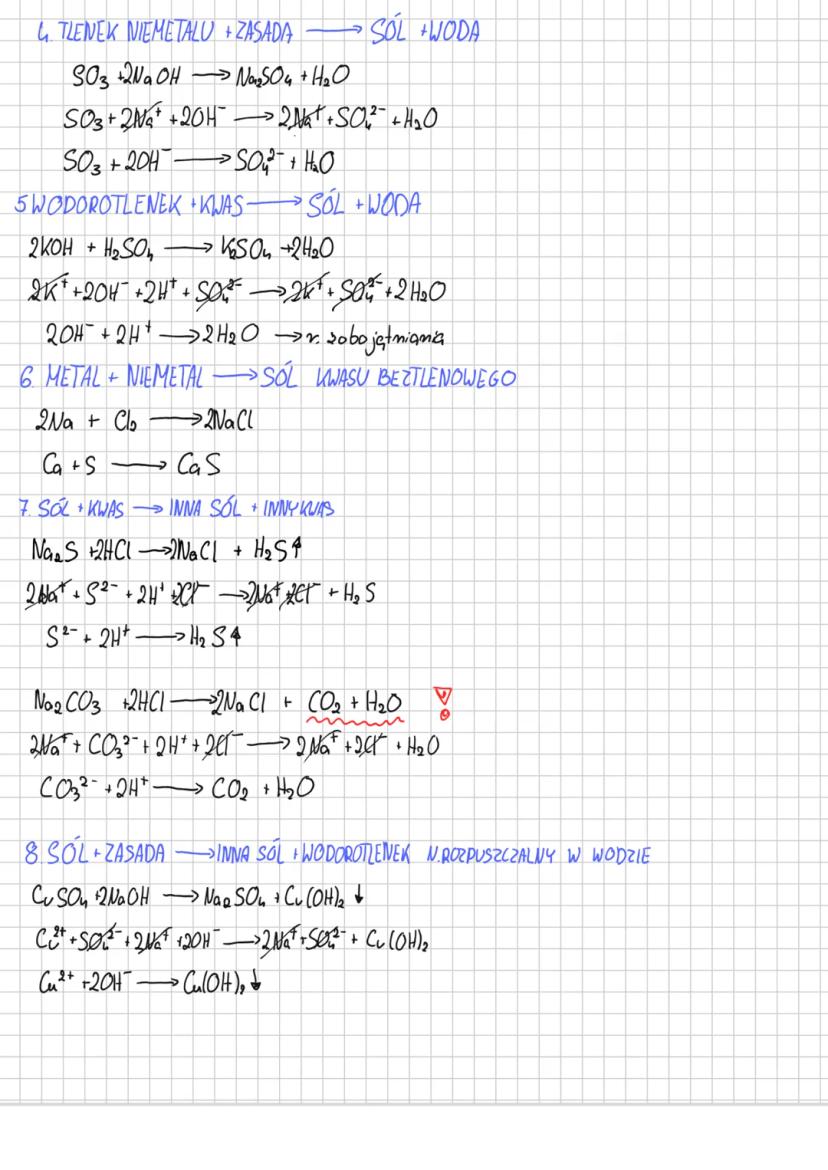 4. TLENEK NIEMETALU + ZASADA → SÓL + WODA
SO₃ + 2NaOH → Na₂SO₄ + H₂O
SO₃ + 2Na⁺ + 2OH⁻ → 2Na⁺ + SO₄²⁻ + H₂O
SO₃ + 2OH⁻ → SO₄²⁻ + H₂O
5 WODOROTLENEK + KWAS → SÓL + WODA
2KOH + H₂SO₄ → K₂SO₄ + 2H₂O
2K⁺ + 2OH⁻ + 2H⁺ + SO₄²⁻ → 2K⁺ + SO₄²⁻ + 2H₂O
2OH⁻ + 2H⁺ → 2H₂O → r. zobojętniania
6. METAL + NIEMETAL → SÓL KWASU BEZTLENOWEGO
2Na + Cl₂ → 2NaCl
Ca + S → CaS
7. SÓL + KWAS → INNA SÓL + INNY KWAS
Na₂S + 2HCl → 2NaCl + H₂S↑
2Na⁺ + S²⁻ + 2H⁺ + 2Cl⁻ → 2Na⁺ + 2Cl⁻ + H₂S
S²⁻ + 2H⁺ → H₂S↑
Na₂CO₃ + 2HCl → 2NaCl + CO₂ + H₂O !
2Na⁺ + CO₃²⁻ + 2H⁺ + 2Cl⁻ → 2Na⁺ + 2Cl⁻ + H₂O
CO₃²⁻ + 2H⁺ → CO₂ + H₂O
8. SÓL + ZASADA → INNA SÓL + WODOROTLENEK N.ROZPUSZCZALNY W WODZIE
CuSO₄ + 2NaOH → Na₂SO₄ + Cu(OH)₂ ↓
Cu²⁺ + SO₄²⁻ + 2Na⁺ + 2OH⁻ → 2Na⁺ + SO₄²⁻ + Cu(OH)₂
Cu²⁺ + 2OH⁻ → Cu(OH)₂ ↓